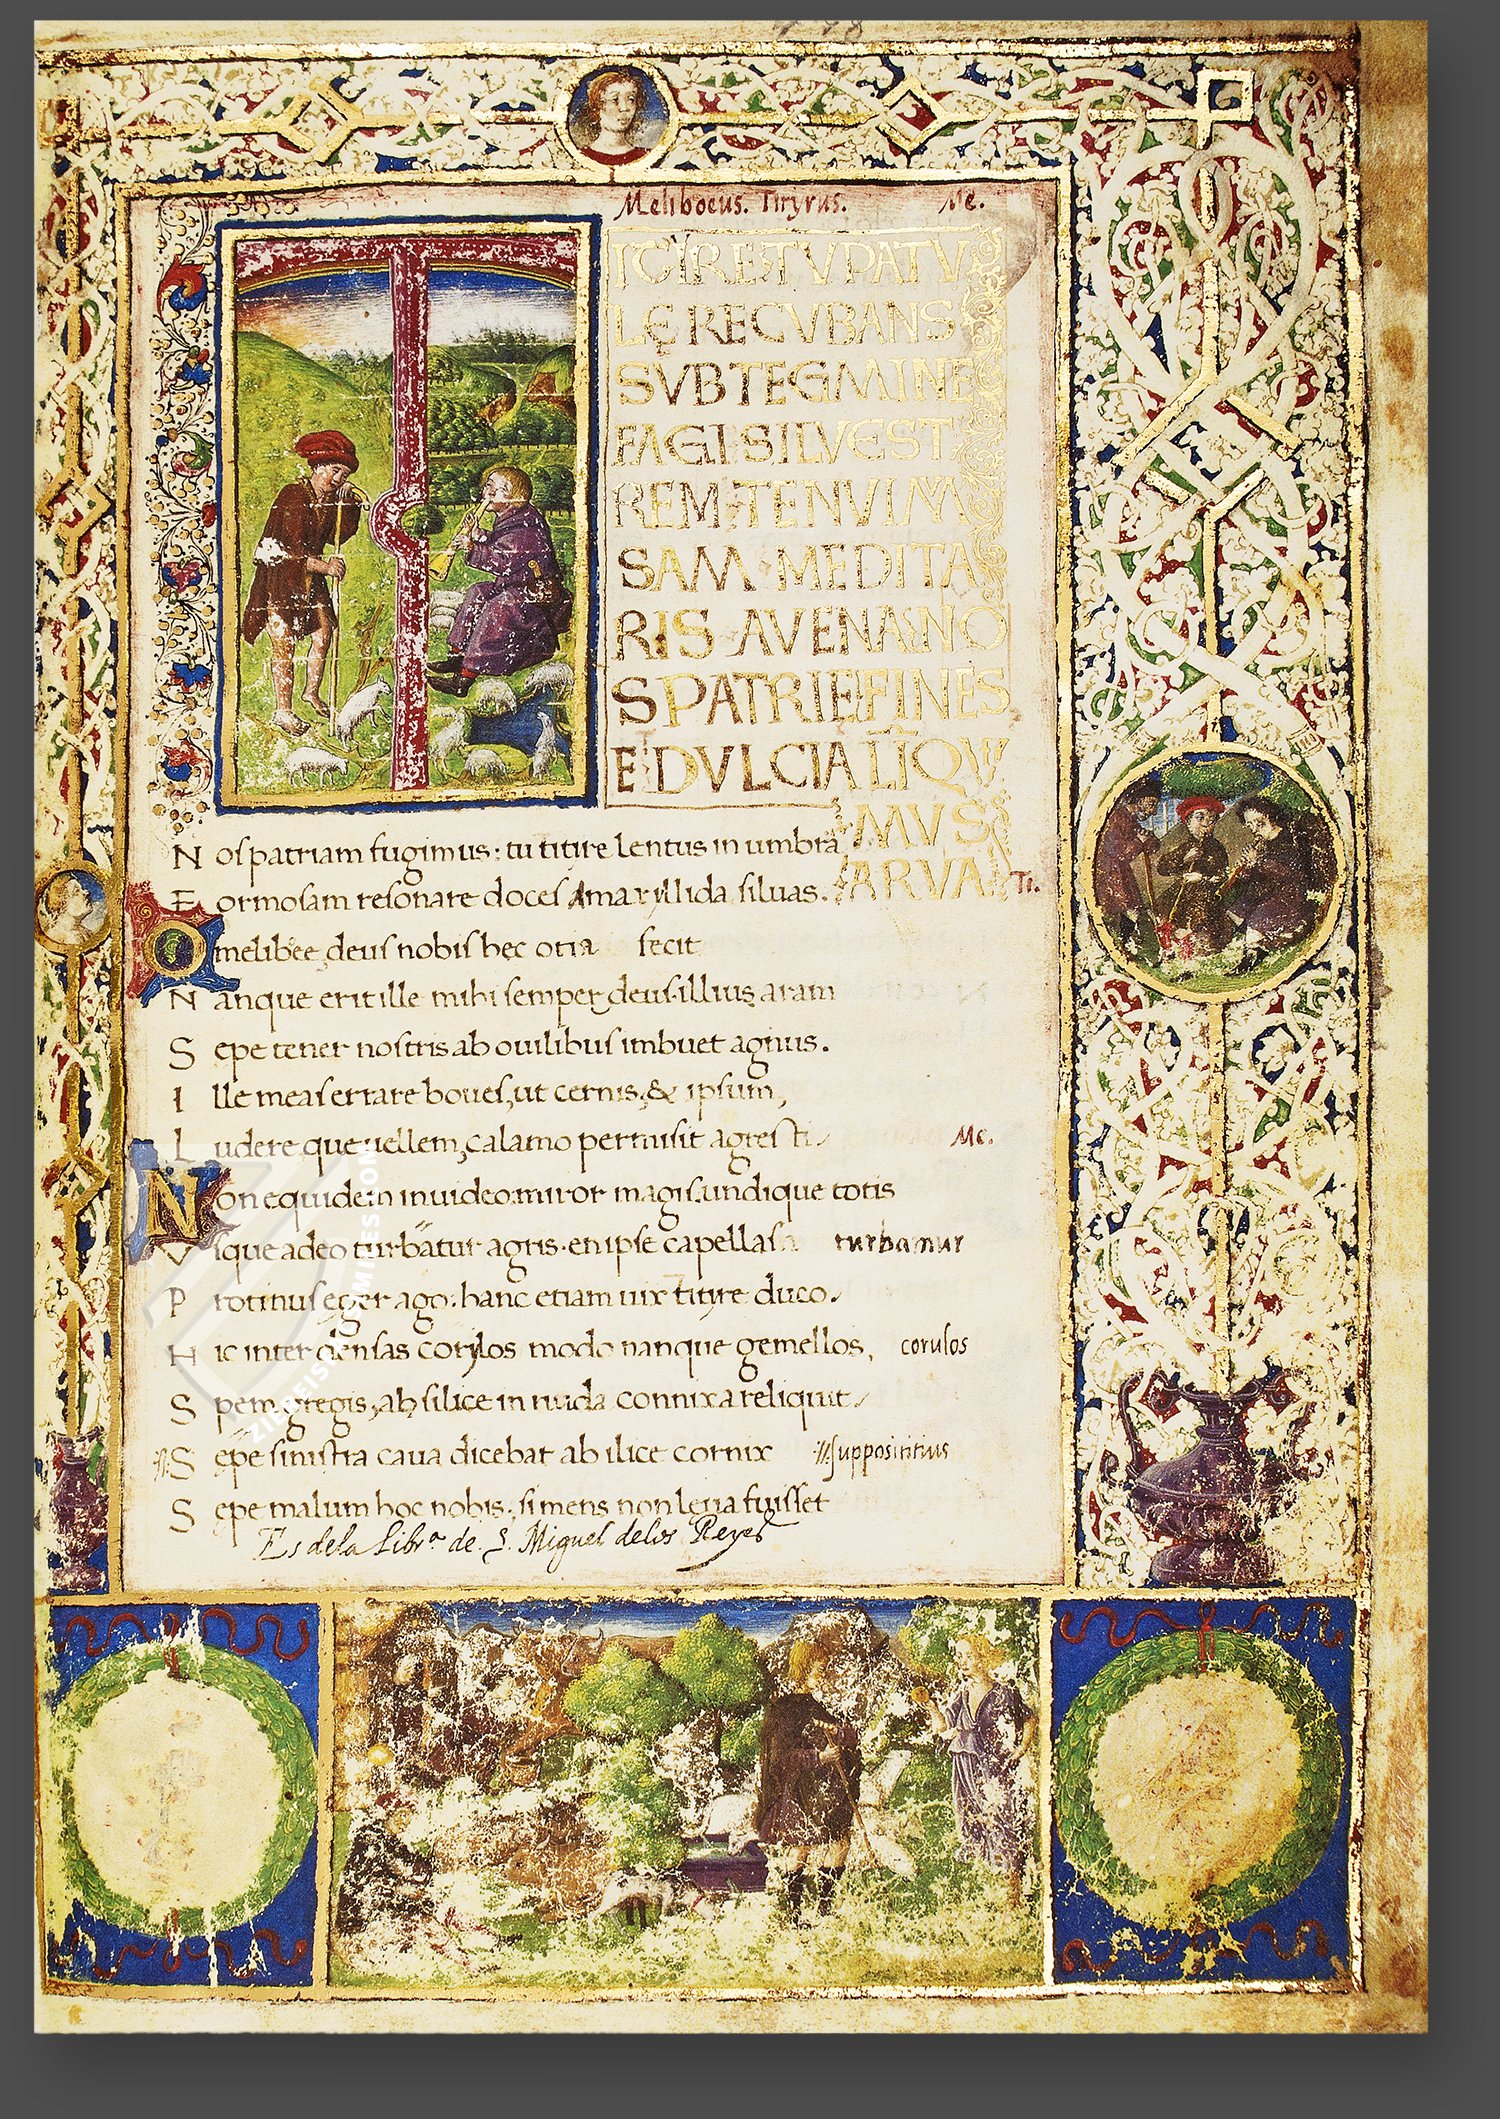 Meliboeus. Tityrus. Me.
ITYRE TV PATV
LĘ RECVBANS
SVB TEGMINE
FAGI SILVEST
REM TENVI M
SAM MEDITA
RIS AVENA: NO
S PATRIĘ FINES
E DVLCIA LĪQV
MVS
ARVA.
N os patriam fugimus: tu titire lentus in umbra
F ormosam resonare doces Amaryllida siluas. Ti.
O melibee, deus nobis hęc otia fecit
N anque erit ille mihi semper deus. illius aram
S ępe tener nostris ab ouilibus imbuet agnus.
I lle meas errare boues, ut cernis, & ipsum,
L udere que uellem, calamo permisit agresti. Me.
N on equidem inuideo: miror magis. undique totis
V ique adeo turbatur agris. en ipse capellas turbamur
P rotinus ęger ago. hanc etiam uix tityre duco.
H ic inter densas corylos modo nanque gemellos, corulos
S pem gregis, ah silice in nuda connixa reliquit.
S ępe sinistra caua dicebat ab ilice cornix suppositius
S ępe malum hoc nobis, si mens non leua fuisset
Es dela Libr.ª de S. Miguel delos Reyes